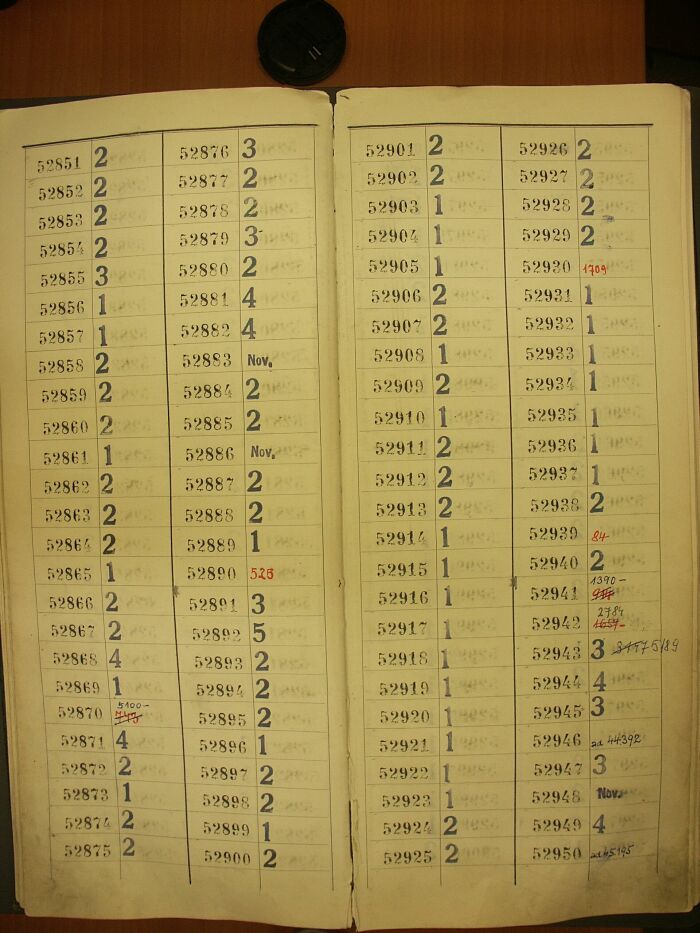 52851 2
52852 2
52853 2
52854 2
52855 3
52856 1
52857 1
52858 2
52859 2
52860 2
52861 1
52862 2
52863 2
52864 2
52865 1
52866 2
52867 2
52868 4
52869 1
5100-
52870
52871 4
52872 2
52873 1
52874 2
52875 2
52876 3
52877 2
52878 2
52879 3
52880 2
52881 4
52882 4
52883 Nov.
52884 2
52885 2
52886 Nov.
52887 2
52888 2
52889 1
52890 526
52891 3
52892 5
52893 2
52894 2
52895 2
52896 1
52897 2
52898 2
52899 1
52900 2
52901 2
52902 2
52903 1
52904 1
52905 1
52906 2
52907 2
52908 1
52909 2
52910 1
52911 2
52912 2
52913 2
52914 1
52915 1
52916 1
52917 1
52918 1
52919 1
52920 1
52921 1
52922 1
52923 1
52924 2
52925 2
52926 2
52927 2
52928 2
52929 2
52930 1709
52931 1
52932 1
52933 1
52934 1
52935 1
52936 1
52937 1
52938 2
52939 84
52940 2
1390-
52941
2784
52942 1657-
52943 3
52944 4
52945 3
52946 ad 44392
52947 3
52948 Nov.
52949 4
52950 ad 45195